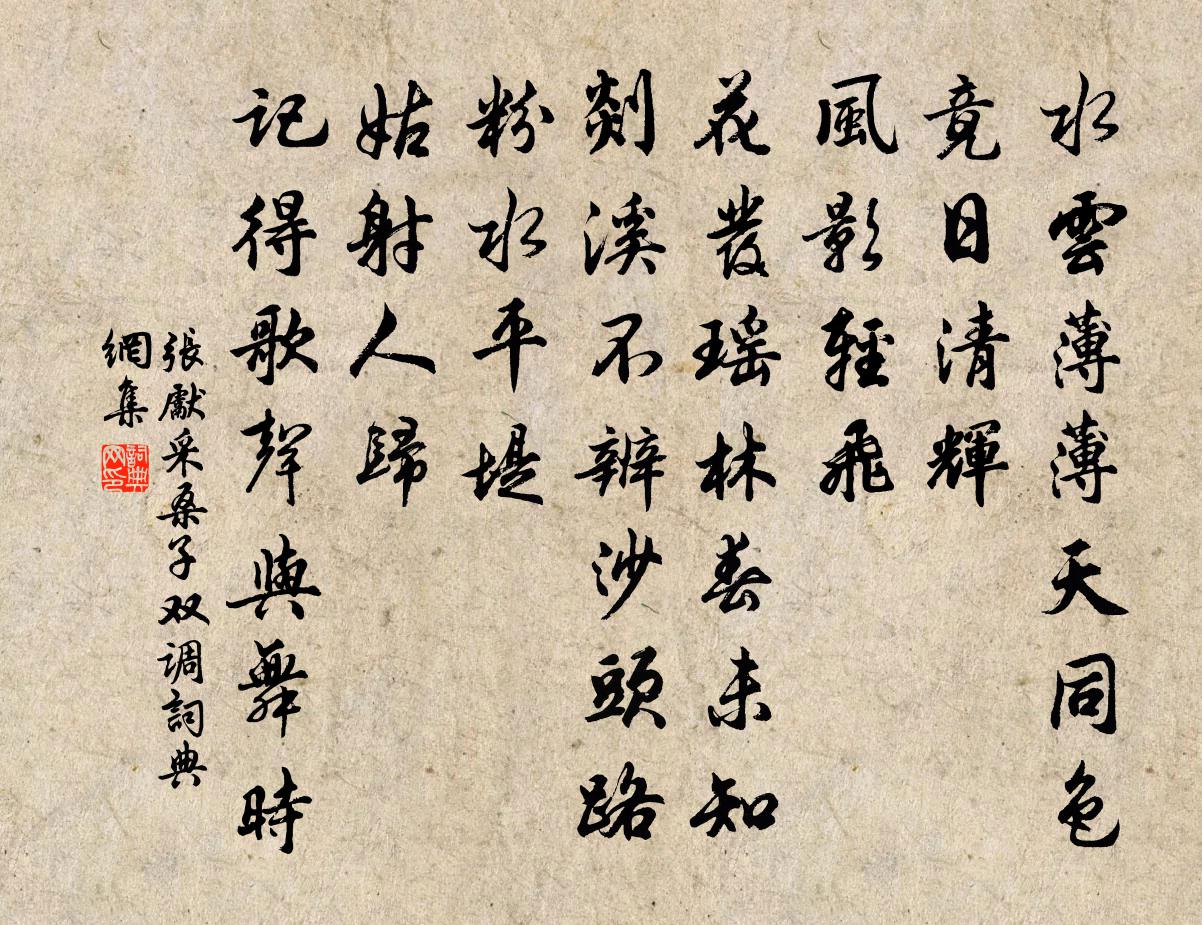 水雲薄薄天同色
竟日清輝
風影輕飛
花發瑤林春未知
剡溪不辨沙頭路
粉水平堤
姑射人歸
記得歌聲與舞時
張獻采桑子双调詞典
網集
詞典网印